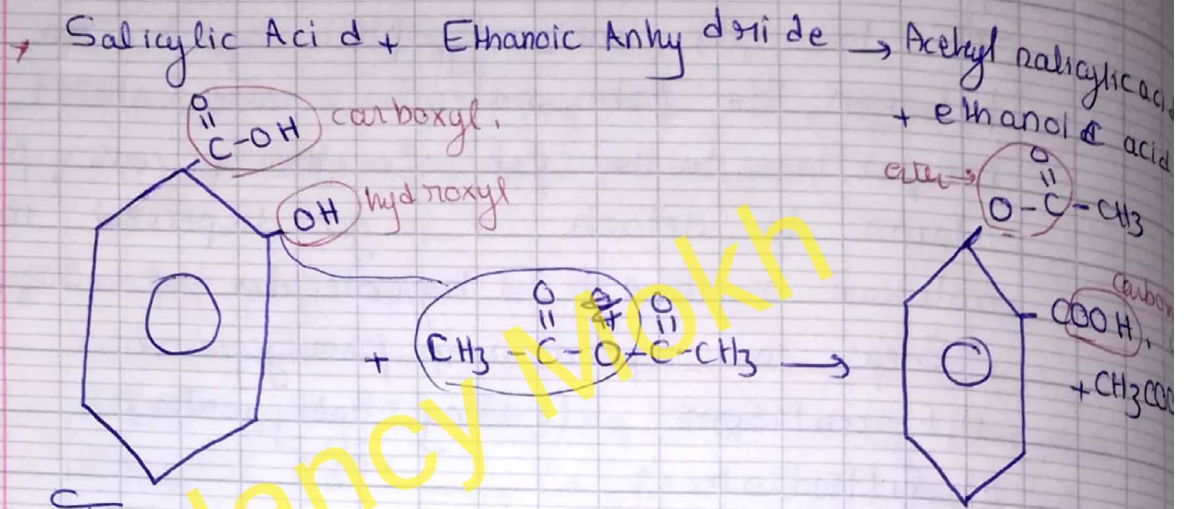 → Salicylic Acid + Ethanoic Anhydride → Acetyl salicylic aci
+ ethanol acid
O
||
C-OH carboxyl.
OH hydroxyl
ester→
O
||
O-C-CH3
O O
|| ||
+ CH3-C-O-C-CH3 →
COOH, Carbo
+CH3COO
ancy Mokh